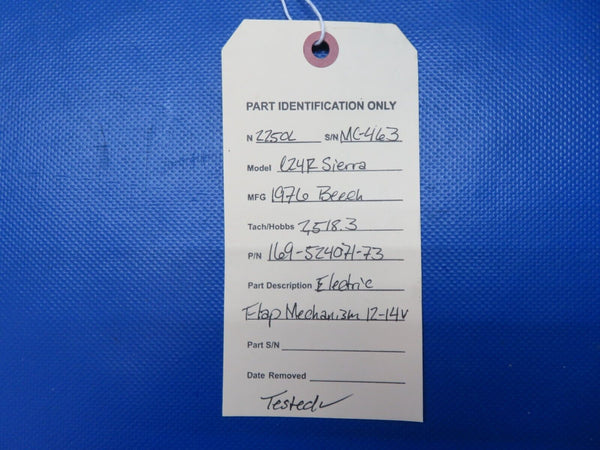 PART IDENTIFICATION ONLY
N 2250L S/N MC-463
Model C24R Sierra
MFG 1976 Beech
Tach/Hobbs 2,518.3
P/N 169-524071-73
Part Description Electric
Flap Mechanism 12-14V
Part S/N
Date Removed
Tested✓